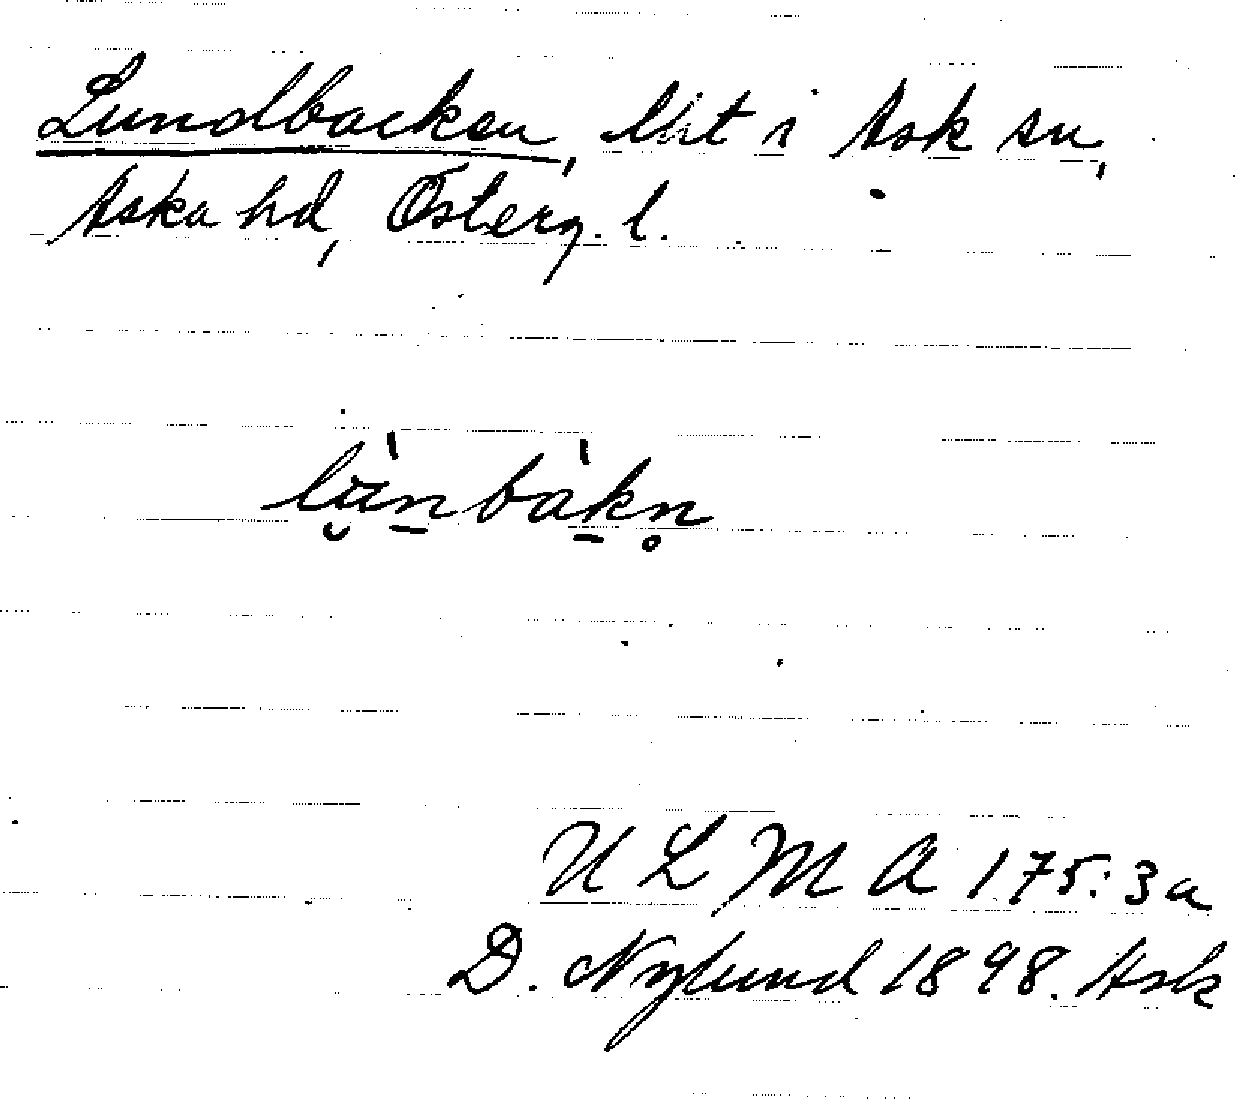 Lundbacken, lht i Ask sn,
Aska hd, Österg. l.
lùnbàkn̥
U L M A 175:3a
D. Nylund 1898. Ask